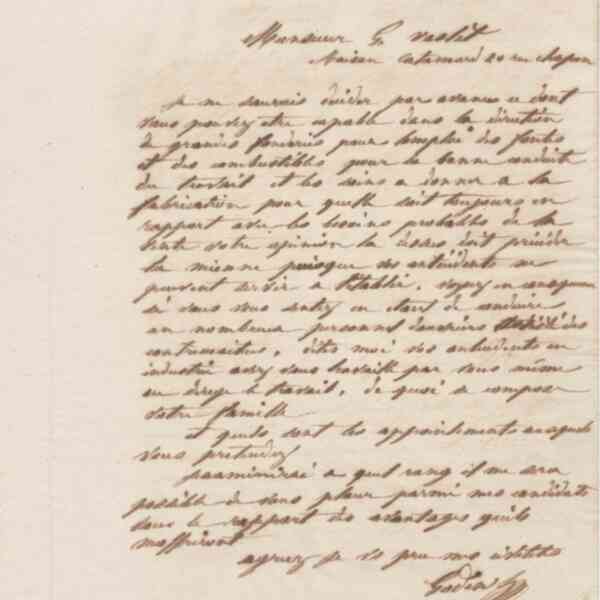 Monsieur G. Vaslet
Maison Catemard 20 rue chapon
Je ne saurais décider par avance ce dont
vous pouvez être capable dans la direction
de grandes fonderies pour l'emploi des fontes
et des combustibles pour la bonne conduite
du travail et les soins a donner a la
fabrication pour quelle soit toujours en
rapport avec les besoins probables de la
vente votre opinion la dessus doit précéder
la mienne puisque vos antécédents ne
peuvent servir a l'établir. voyez en conséquence
si vous vous sentez en état de conduire
un nombreux personnel douvriers des
contremaitres, dites moi vos antécédents en
industrie avez vous travaillé par vous même
ou dirigé le travail, de quoi se compose
votre famille
et quels sont les appointements auxquels
vous prétendez
j'examinerai a quel rang il me sera
possible de vous placer parmi mes candidats
sous le rapport des avantages quils
moffriront
agréez je vs prie mes civilités
Godin